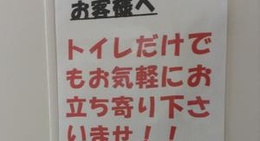 お客様へ
トイレだけで
もお気軽にお
立ち寄り下さ
いませ！！